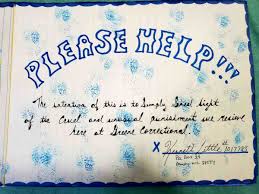 PLEASE HELP!!!
The intention of this is to Simply Shed light
of the Cruel and unusual punishment we recieve
here at Greene Correctional.
X Kenneth Little #
P.O. Box 39